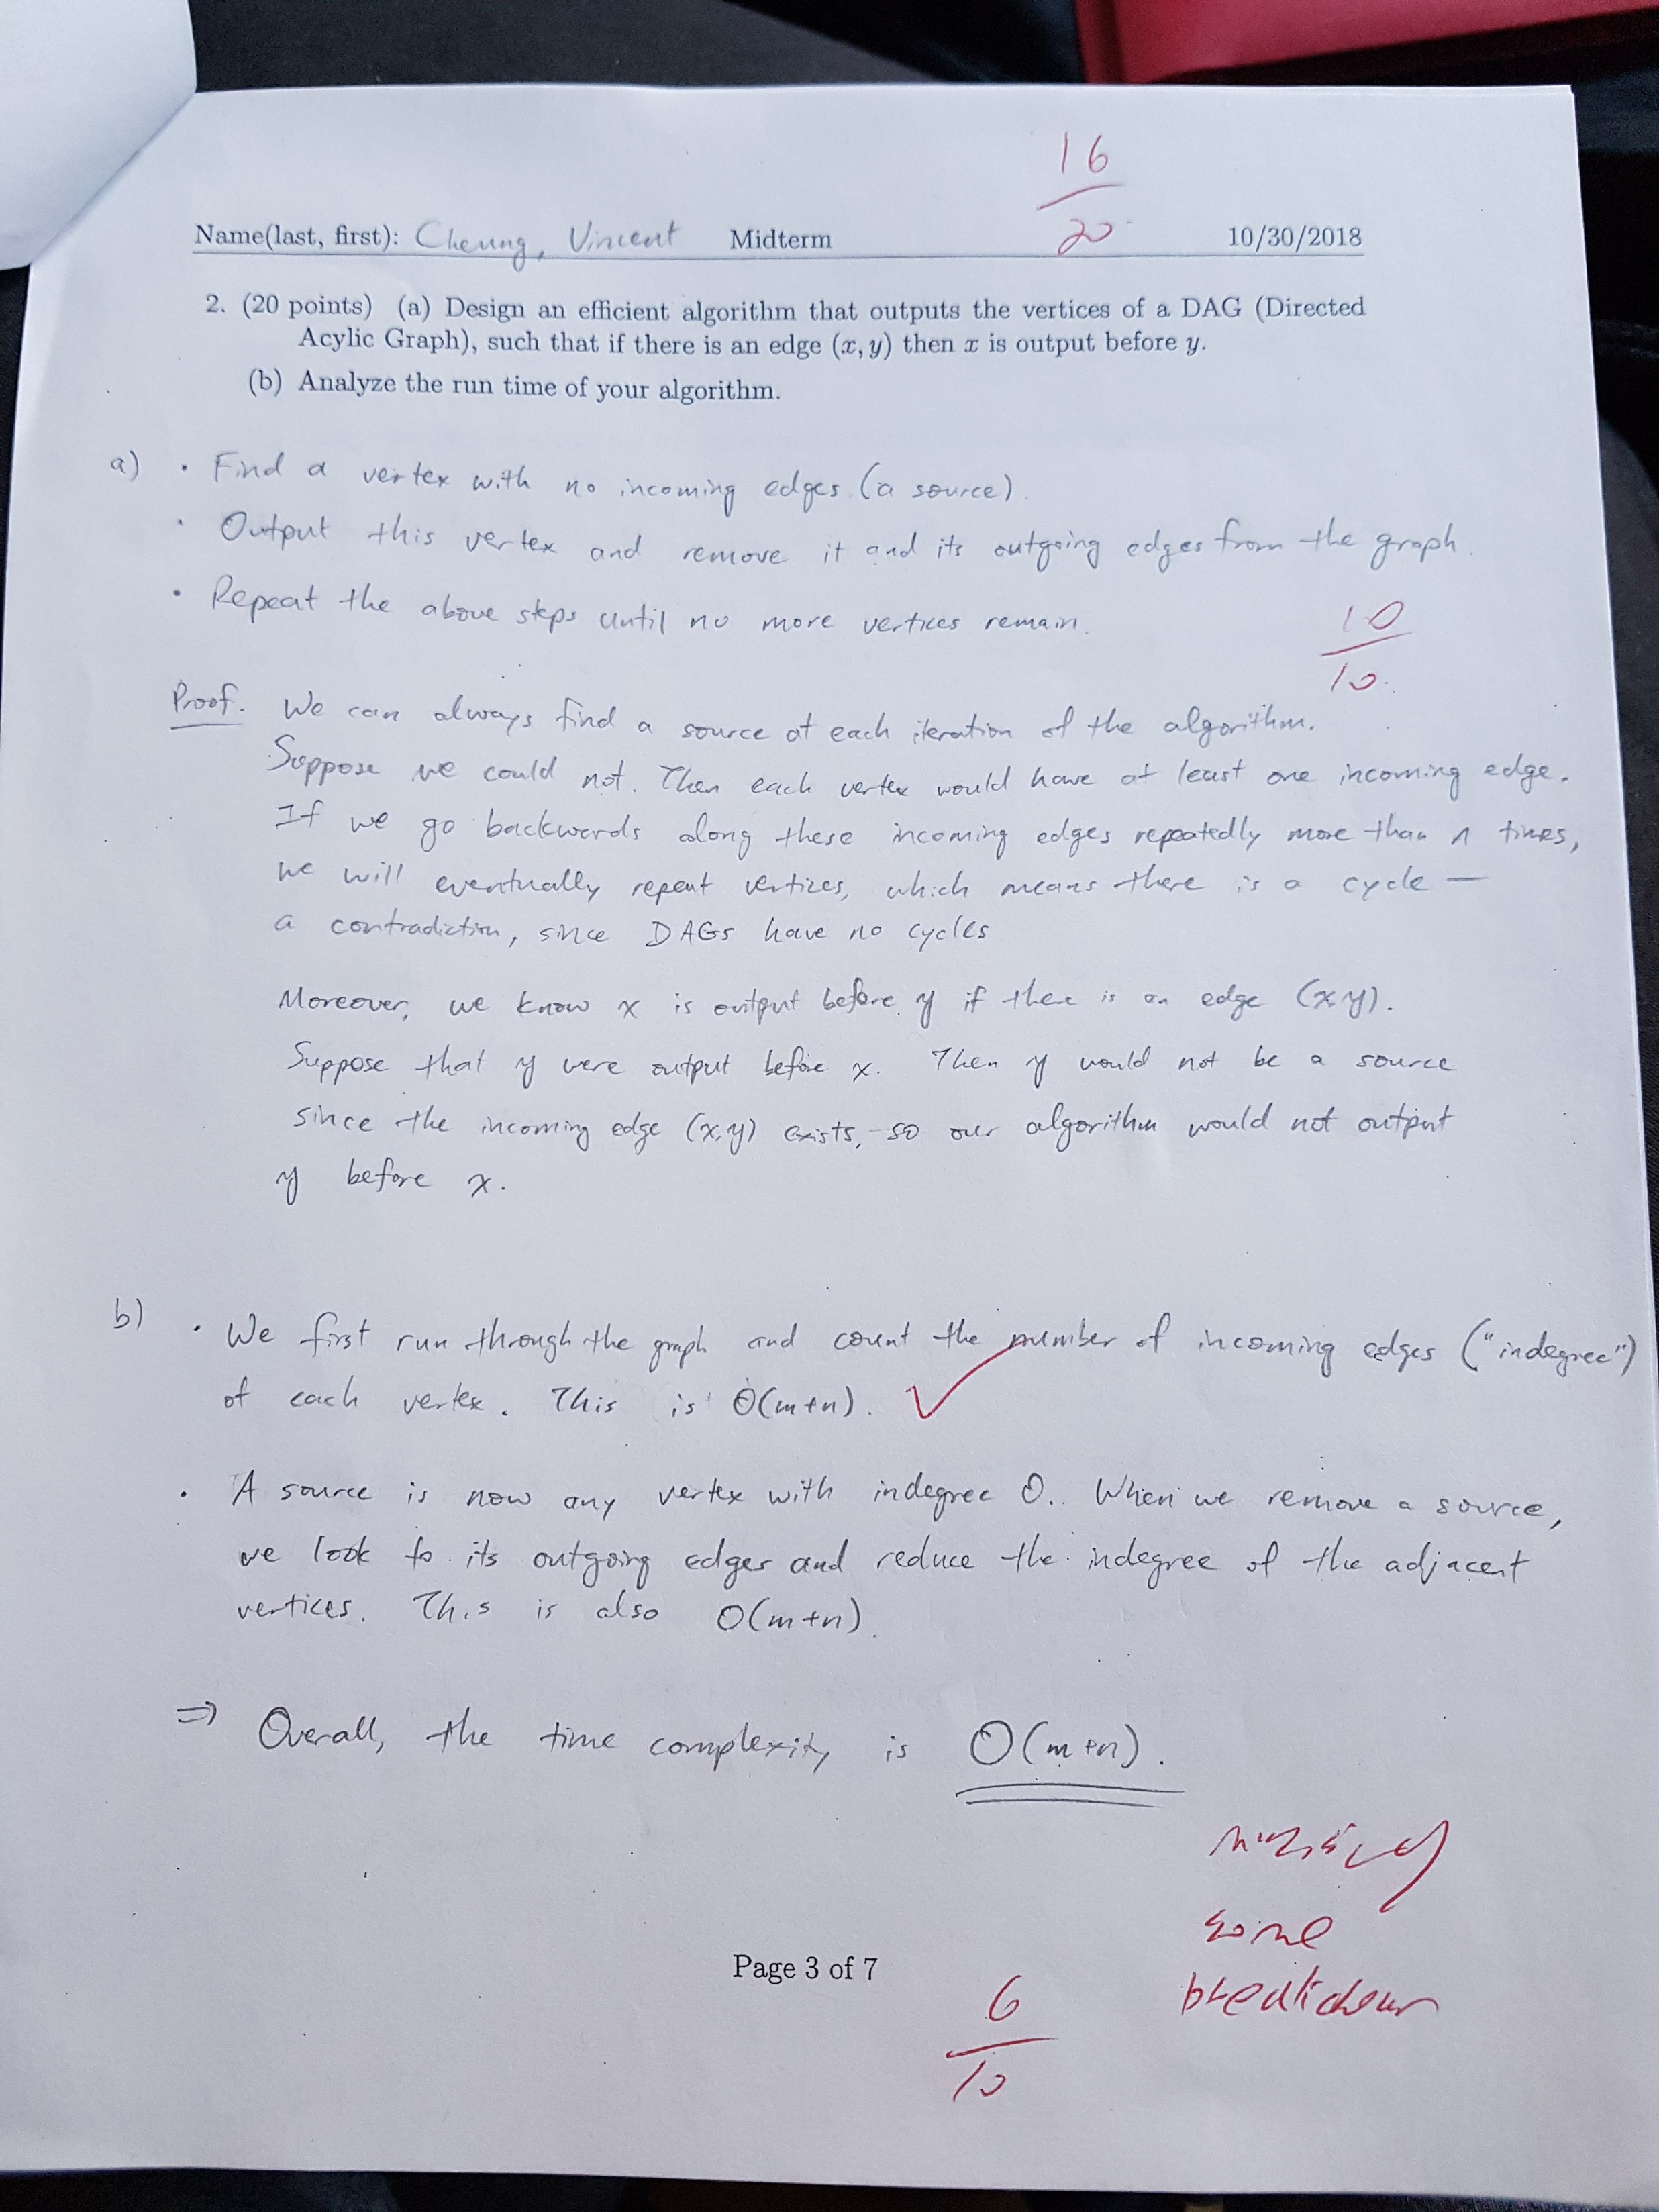 16
20
Name(last, first): Cheung, Vincent Midterm 10/30/2018
2. (20 points) (a) Design an efficient algorithm that outputs the vertices of a DAG (Directed
Acylic Graph), such that if there is an edge (x, y) then x is output before y.
(b) Analyze the run time of your algorithm.
a) • Find a vertex with no incoming edges (a source).
• Output this vertex and remove it and its outgoing edges from the graph.
• Repeat the above steps until no more vertices remain.
10
10
Proof. We can always find a source at each iteration of the algorithm.
Suppose we could not. Then each vertex would have at least one incoming edge.
If we go backwards along these incoming edges repeatedly more than n times,
we will eventually repeat vertices, which means there is a cycle —
a contradiction, since DAGs have no cycles
Moreover, we know x is output before y if there is an edge (x,y).
Suppose that y were output before x. Then y would not be a source
since the incoming edge (x,y) exists, so our algorithm would not output
y before x.
b) • We first run through the graph and count the number of incoming edges ("indegree")
of each vertex. This is O(m+n). ✓
• A source is now any vertex with indegree 0. When we remove a source,
we look to its outgoing edges and reduce the indegree of the adjacent
vertices. This is also O(m+n).
⇒ Overall, the time complexity is O(m+n).
missing
some
breakdown
Page 3 of 7
6
10